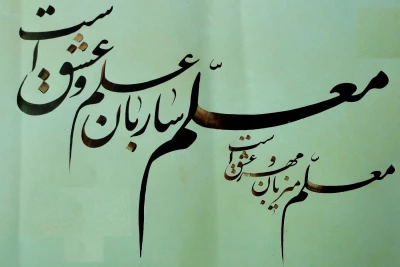 معلّم ساربان علم و عشق است
معلّم میزبان و مهر و عشق است